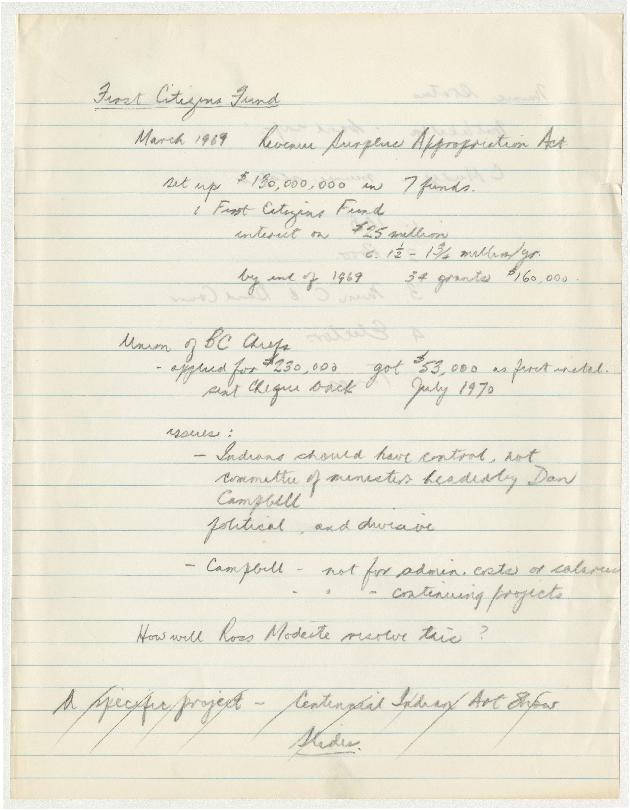 First Citizens Fund
March 1969 Revenue Surplus Appropriation Act
set up $130,000,000 in 7 funds.
First Citizens Fund
interest on $25 million
1½ - 1¾ million/yr.
by end of 1969 34 grants $160,000.
Union of BC Chiefs
- applied for $230,000 got $53,000 as first instal.
sent cheque back July 1970
issues:
- Indians should have control, not
committee of ministers headed by Dan
Campbell
political, and divisive
- Campbell - not for admin. costs or salaries
" " - continuing projects
How will Ross Modeste resolve this?
A specific project - Centennial Indian Art Show
Slides.